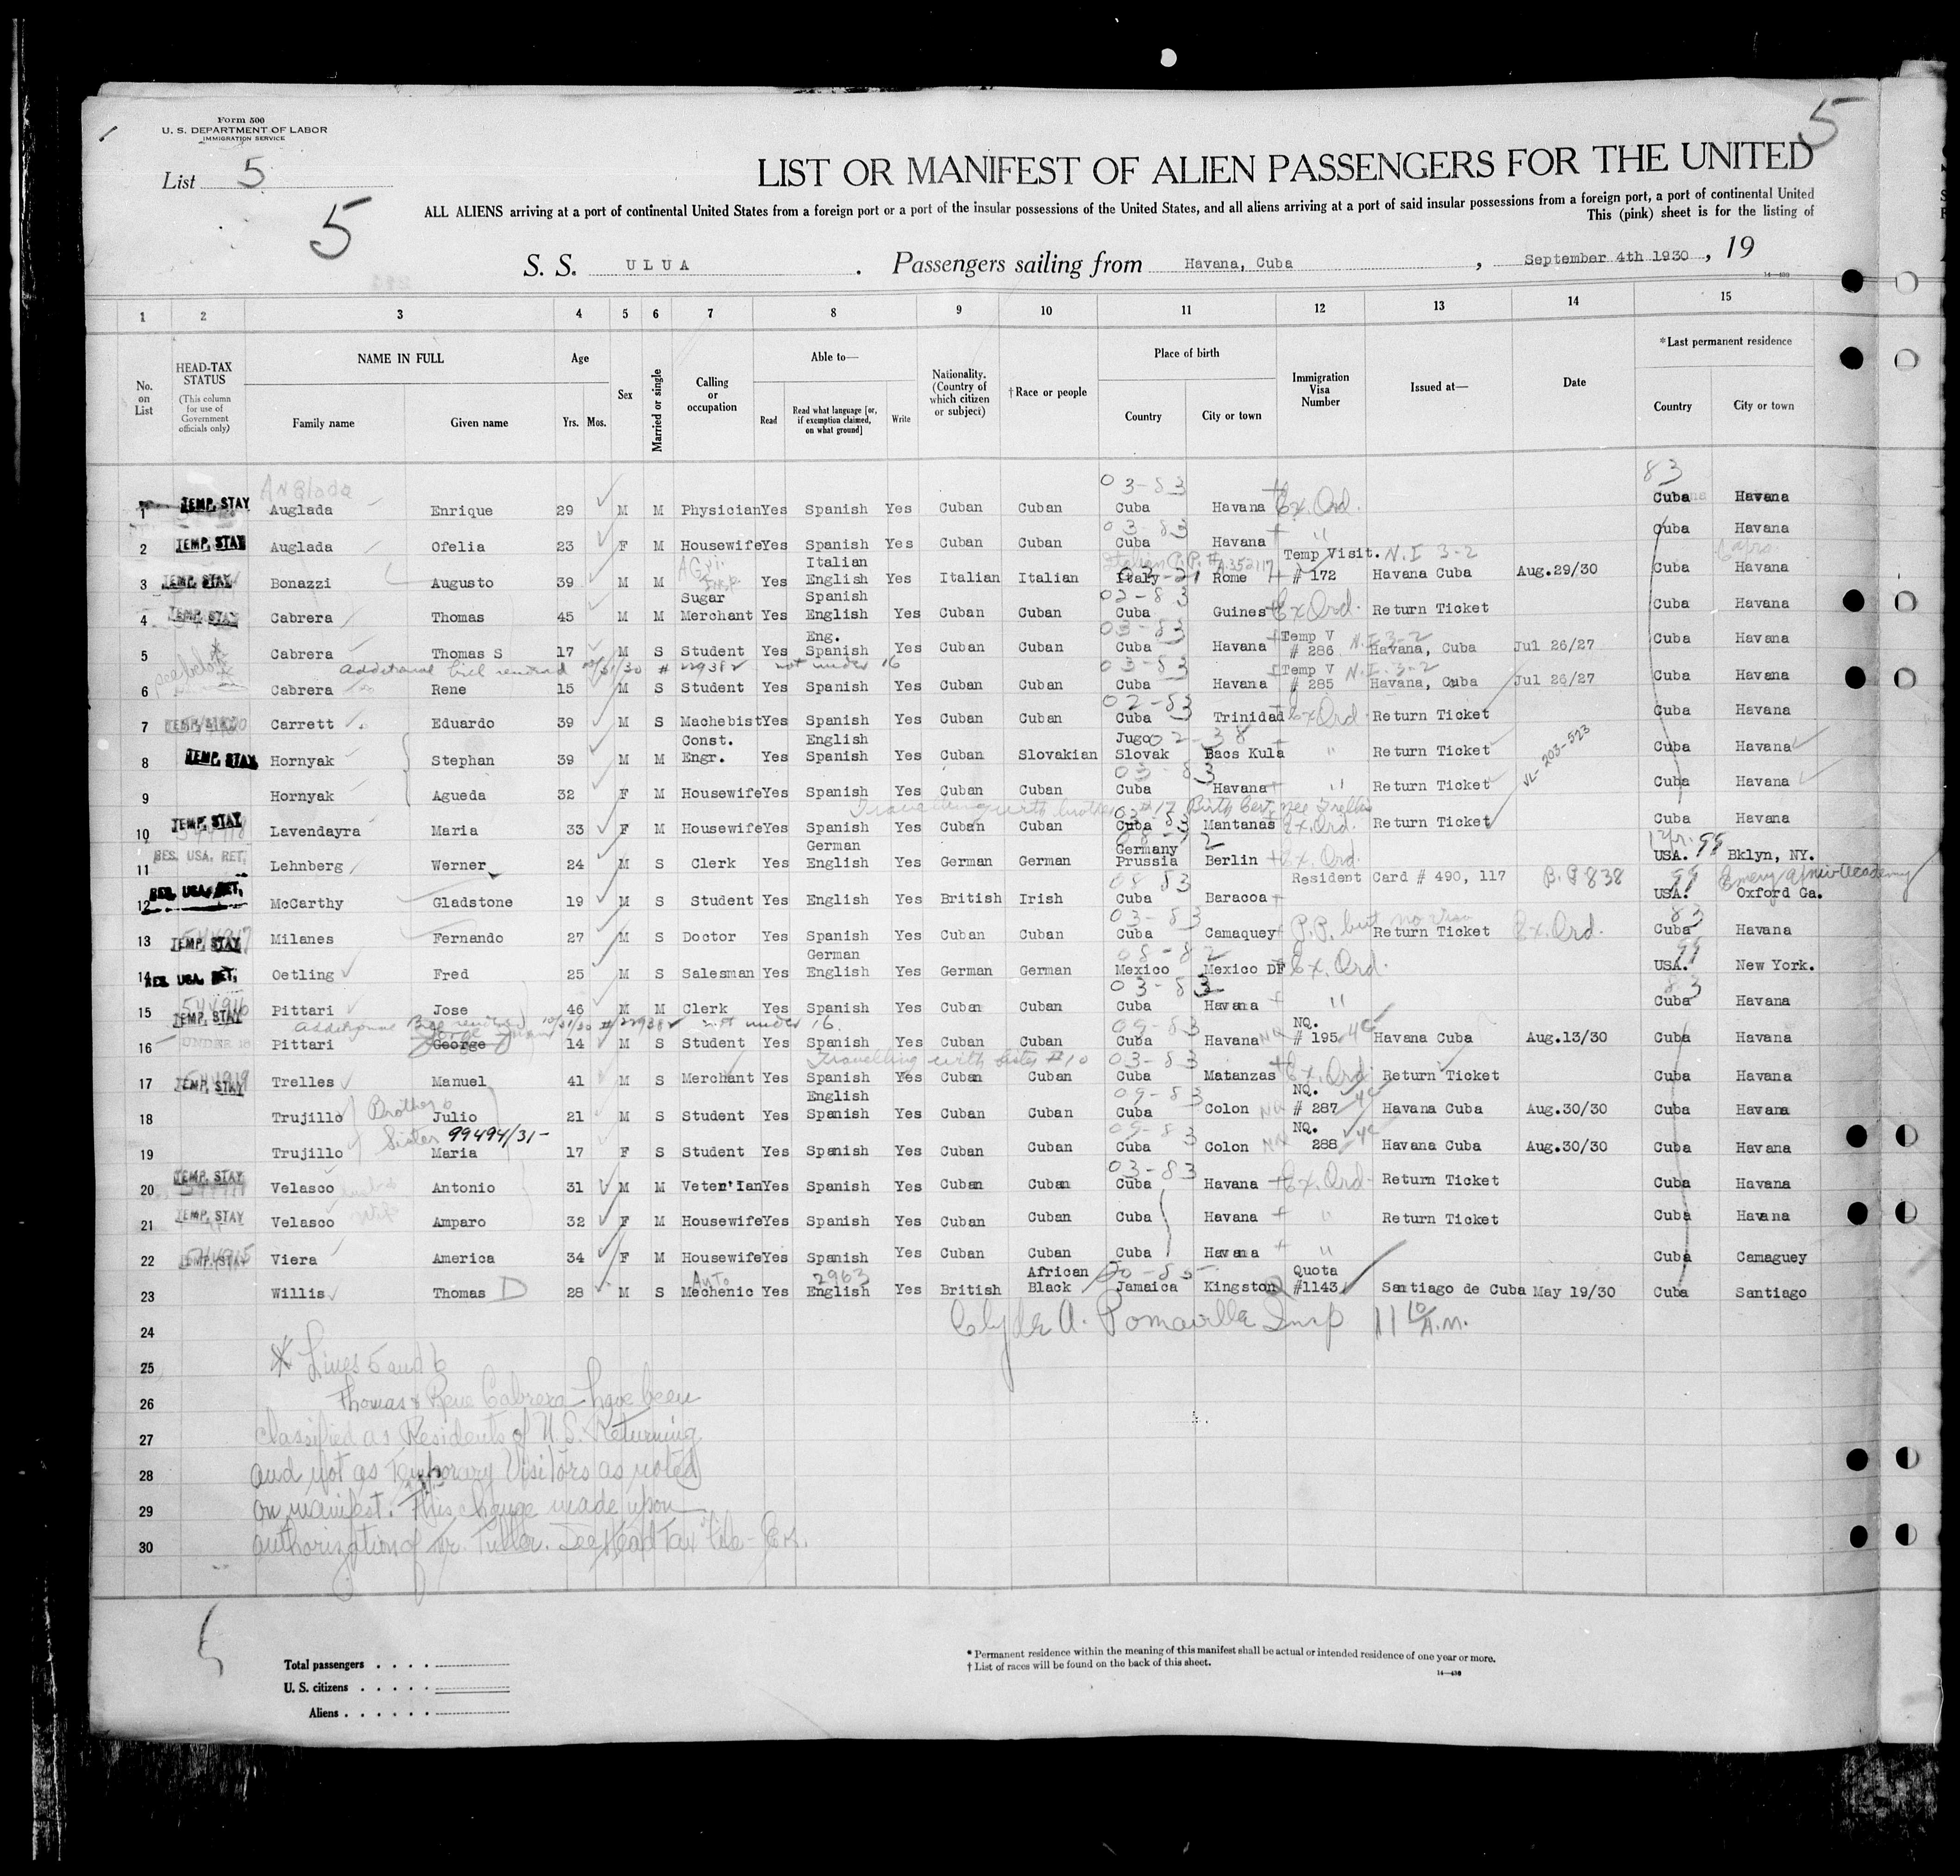 Form 500
U. S. DEPARTMENT OF LABOR
IMMIGRATION SERVICE
5
List 5
5
LIST OR MANIFEST OF ALIEN PASSENGERS FOR THE UNITED
ALL ALIENS arriving at a port of continental United States from a foreign port or a port of the insular possessions of the United States, and all aliens arriving at a port of said insular possessions from a foreign port, a port of continental United
This (pink) sheet is for the listing of
S. S. ULUA. Passengers sailing from Havana, Cuba, September 4th 1930, 19
14—430
1 2 3 4 5 6 7 8 9 10 11 12 13 14 15
No. on List
HEAD-TAX STATUS (This column for use of Government officials only)
NAME IN FULL Family name Given name
Age Yrs. Mos.
Sex
Married or single
Calling or occupation
Able to— Read Read what language [or, if exemption claimed, on what ground] Write
Nationality. (Country of which citizen or subject)
†Race or people
Place of birth Country City or town
Immigration Visa Number
Issued at—
Date
*Last permanent residence Country City or town
Anglada 03-83 83
1 TEMP. STAY Auglada Enrique 29 M M Physician Yes Spanish Yes Cuban Cuban Cuba Havana Ex. Ord. Cuba Havana
03-83
2 TEMP. STAY Auglada Ofelia 23 F M Housewife Yes Spanish Yes Cuban Cuban Cuba Havana " Cuba Havana
Agri. Insp. Italian Italian P.P. # A352117 Temp Visit. N.I 3-2
3 TEMP. STAY Bonazzi Augusto 39 M M Yes English Yes Italian Italian Italy Rome # 172 Havana Cuba Aug.29/30 Cuba Havana
Sugar Spanish 02-83
4 TEMP. STAY Cabrera Thomas 45 M M Merchant Yes English Yes Cuban Cuban Cuba Guines Ex Ord. Return Ticket Cuba Havana
Eng. 03-83 Temp V N.I 3-2
5 Cabrera Thomas S 17 M S Student Yes Spanish Yes Cuban Cuban Cuba Havana # 286 Havana, Cuba Jul 26/27 Cuba Havana
Additional bill rendered 10/31/30 # 229382 not under 16 03-83 Temp V N.I. 3-2
6 Cabrera Rene 15 M S Student Yes Spanish Yes Cuban Cuban Cuba Havana # 285 Havana, Cuba Jul 26/27 Cuba Havana
02-83
7 TEMP. STAY Carrett Eduardo 39 M S Machebist Yes Spanish Yes Cuban Cuban Cuba Trinidad Ex Ord. Return Ticket Cuba Havana
Const. English Jugo 02-38 VL-203-523
8 TEMP. STAY Hornyak Stephan 39 M M Engr. Yes Spanish Yes Cuban Slovakian Slovak Bacs Kula " Return Ticket Cuba Havana
03-83
9 Hornyak Agueda 32 F M Housewife Yes Spanish Yes Cuban Cuban Cuba Havana " Return Ticket Cuba Havana
Travelling with brother #17 Birth Cert. nee Trelles
03-83
10 TEMP. STAY Lavendayra Maria 33 F M Housewife Yes Spanish Yes Cuban Cuban Cuba Mantanas Ex. Ord. Return Ticket Cuba Havana
German Germany 1 yr. 99
11 RES. USA. RET. Lehnberg Werner 24 M S Clerk Yes English Yes German German Prussia Berlin Ex. Ord. USA. Bklyn, NY.
08 83 Resident Card # 490, 117 B.P 838 99 Emery Univ Academy
12 RES. USA. RET. McCarthy Gladstone 19 M S Student Yes English Yes British Irish Cuba Baracoa USA. Oxford Ga.
03-83 83
13 TEMP. STAY Milanes Fernando 27 M S Doctor Yes Spanish Yes Cuban Cuban Cuba Camaquey P.P. but no visa Return Ticket Ex. Ord. Cuba Havana
German 08-82 99
14 RES. USA. RET. Oetling Fred 25 M S Salesman Yes English Yes German German Mexico Mexico DF Ex. Ord. USA. New York.
544916 03-83 83
15 TEMP. STAY Pittari Jose 46 M M Clerk Yes Spanish Yes Cuban Cuban Cuba Havana " Cuba Havana
Additional Bill rendered 10/31/30 #229382 not under 16. 09-83 NQ.
16 UNDER 16 Pittari George 14 M S Student Yes Spanish Yes Cuban Cuban Cuba Havana NQ # 195 4c Havana Cuba Aug.13/30 Cuba Havana
Travelling with sister #10 03-83
17 544919 TEMP. STAY Trelles Manuel 41 M S Merchant Yes Spanish Yes Cuban Cuban Cuba Matanzas Ex. Ord. Return Ticket Cuba Havana
Brother & English 09-83 NQ. 4c
18 Trujillo Julio 21 M S Student Yes Spanish Yes Cuban Cuban Cuba Colon NQ # 287 Havana Cuba Aug.30/30 Cuba Havana
Sister 99494/31- 09-83 NQ. 4c
19 Trujillo Maria 17 F S Student Yes Spanish Yes Cuban Cuban Cuba Colon NQ 288 Havana Cuba Aug.30/30 Cuba Havana
03-83
20 TEMP. STAY Velasco Antonio 31 M M Veter'Ian Yes Spanish Yes Cuban Cuban Cuba Havana Ex. Ord. Return Ticket Cuba Havana
wife
21 TEMP. STAY Velasco Amparo 32 F M Housewife Yes Spanish Yes Cuban Cuban Cuba Havana " Return Ticket Cuba Havana
22 544915 TEMP. STAY Viera America 34 F M Housewife Yes Spanish Yes Cuban Cuban Cuba Havana " Cuba Camaguey
Auto 2963 African Quota
23 Willis Thomas D 28 M S Mechenic Yes English Yes British Black Jamaica Kingston #1143 Santiago de Cuba May 19/30 Cuba Santiago
24 Clyde A. Pomaville Insp 11 10 A.M.
25 * Lines 5 and 6
26 Thomas & Rene Cabrera have been
27 classified as Residents of U.S. Returning
28 and not as Temporary Visitors as noted
29 on manifest. This change made upon
30 authorization of Mr. Tuller. See Head Tax File
Total passengers
U. S. citizens
Aliens
* Permanent residence within the meaning of this manifest shall be actual or intended residence of one year or more.
† List of races will be found on the back of this sheet.
14—430